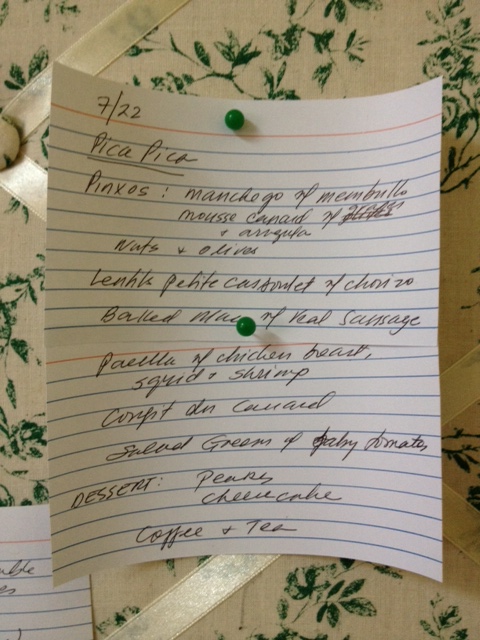 7/22
Pica Pica
Pinxos : manchego w/ membrillo
mousse canard w/
+ arugula
Nuts + olives
Lentils petite cassoulet w/ chorizo
Baked w/ Veal Sausage
Paella w/ chicken breast,
squid + shrimp
Confit du Canard
Salad Greens w/ baby tomatoes
DESSERT: Pears
Cheesecake
Coffee + Tea